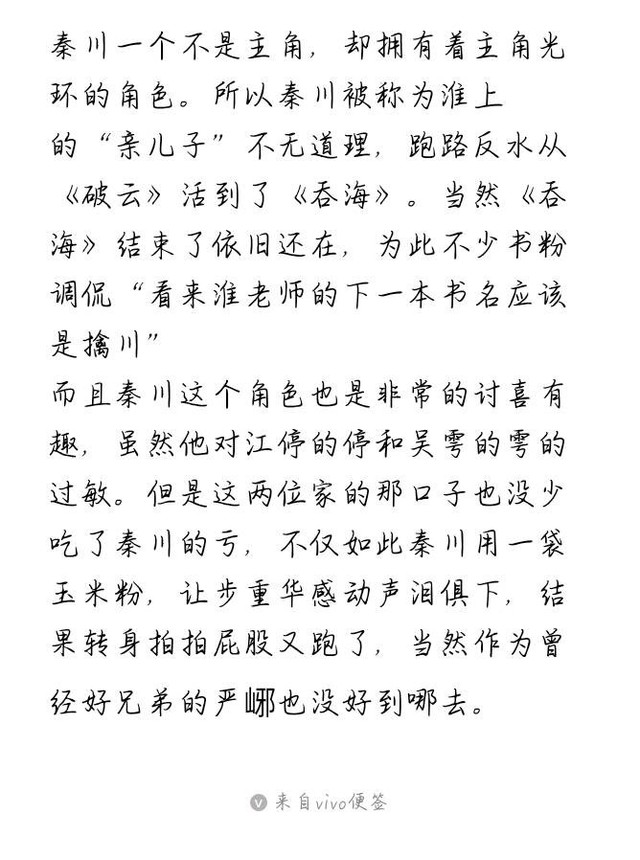 秦川一个不是主角，却拥有着主角光
环的角色。所以秦川被称为淮上
的“亲儿子”不无道理，跑路反水从
《破云》活到了《吞海》。当然《吞
海》结束了依旧还在，为此不少书粉
调侃“看来淮老师的下一本书名应该
是擒川”
而且秦川这个角色也是非常的讨喜有
趣，虽然他对江停的停和吴雩的雩的
过敏。但是这两位家的那口子也没少
吃了秦川的亏，不仅如此秦川用一袋
玉米粉，让步重华感动声泪俱下，结
果转身拍拍屁股又跑了，当然作为曾
经好兄弟的严峫也没好到哪去。
来自vivo便签